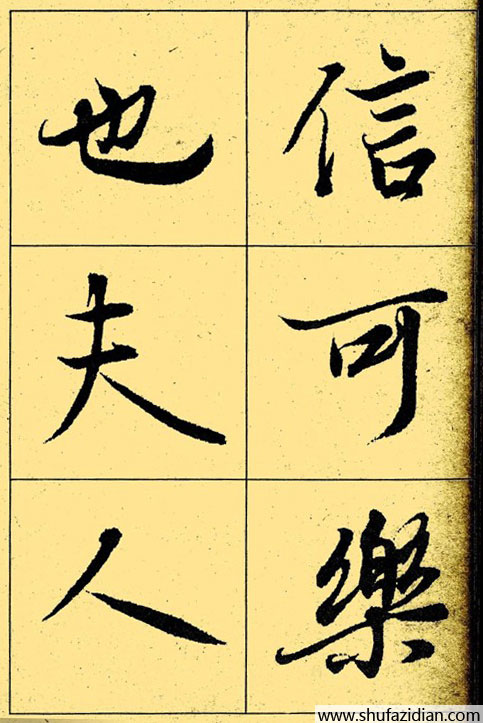 信可樂
也夫人
www.shufazidian.com